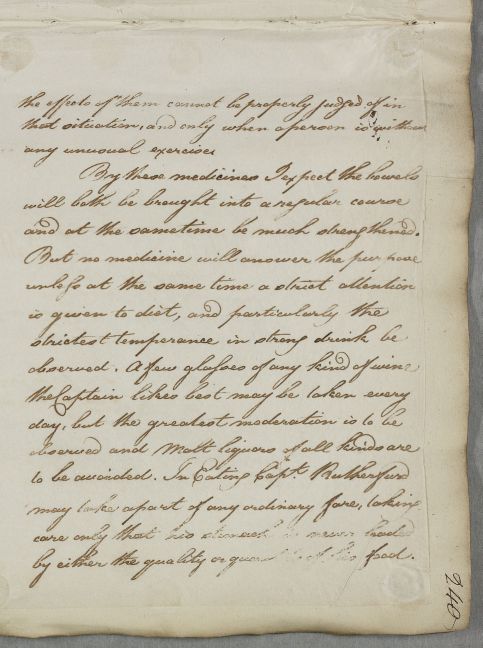 the effects of them cannot be properly judged of in
that situation, and only when a person is without
any unusual exercise.
By these medicines I expect the bowels
will both be brought into a regular course
and at the sametime be much strengthened.
But no medicine will answer the purpose
unless at the same time a strict attention
is given to diet, and particularly the
strictest temperance in strong drink be
observed. A few glasses of any kind of wine
the Captain likes best may be taken every
day, but the greatest moderation is to be
observed and Malt liquors of all kinds are
to be avoided. In Eating Capt. Rutherfurd
may take a part of any ordinary fare, taking
care only that his stomach is never loaded
by either the quality or quantity of his food.
240